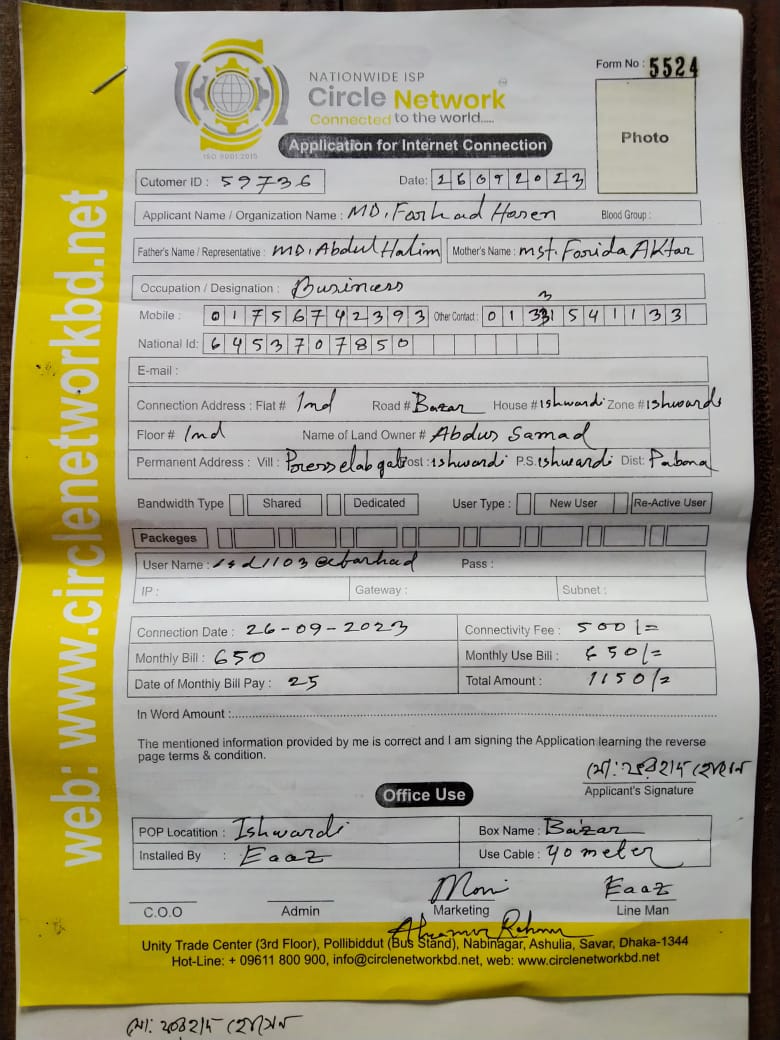 NATIONWIDE ISP
Circle Network
Connected to the world.....
ISO 9001:2015
Form No : 5524
Photo
Application for Internet Connection
Cutomer ID : 59736 Date: 26092023
Applicant Name / Organization Name : MD. Farhad Hosen Blood Group :
Father's Name / Representative : MD. Abdul Halim Mother's Name : Mst. Forida AKtar
Occupation / Designation : Business
Mobile : 01756742393 Other Contact : 01331541133
National Id: 6453707850
E-mail :
Connection Address : Flat # 2nd Road # Bazar House # ishwardi Zone # ishwardi
Floor # 2nd Name of Land Owner # Abdus Samad
Permanent Address : Vill : Post : ishwardi P.S. ishwardi Dist: Pabona
Bandwidth Type Shared Dedicated User Type : New User Re-Active User
Packeges
User Name : Pass :
IP : Gateway : Subnet :
Connection Date : 26-09-2023 Connectivity Fee : 500/=
Monthly Bill : 650 Monthly Use Bill : 650/=
Date of Monthly Bill Pay : 25 Total Amount : 1150/=
In Word Amount :
The mentioned information provided by me is correct and I am signing the Application learning the reverse
page terms & condition.
মো: ফরহাদ হোসেন
Applicant's Signature
Office Use
POP Locatition : Ishwardi Box Name : Bazar
Installed By : Eaaz Use Cable : 40 meter
Moni Eaaz
C.O.O Admin Marketing Line Man
Unity Trade Center (3rd Floor), Pollibiddut (Bus Stand), Nabinagar, Ashulia, Savar, Dhaka-1344
Hot-Line: + 09611 800 900, info@circlenetworkbd.net, web: www.circlenetworkbd.net
মো: ফরহাদ হোসেন
web: www.circlenetworkbd.net